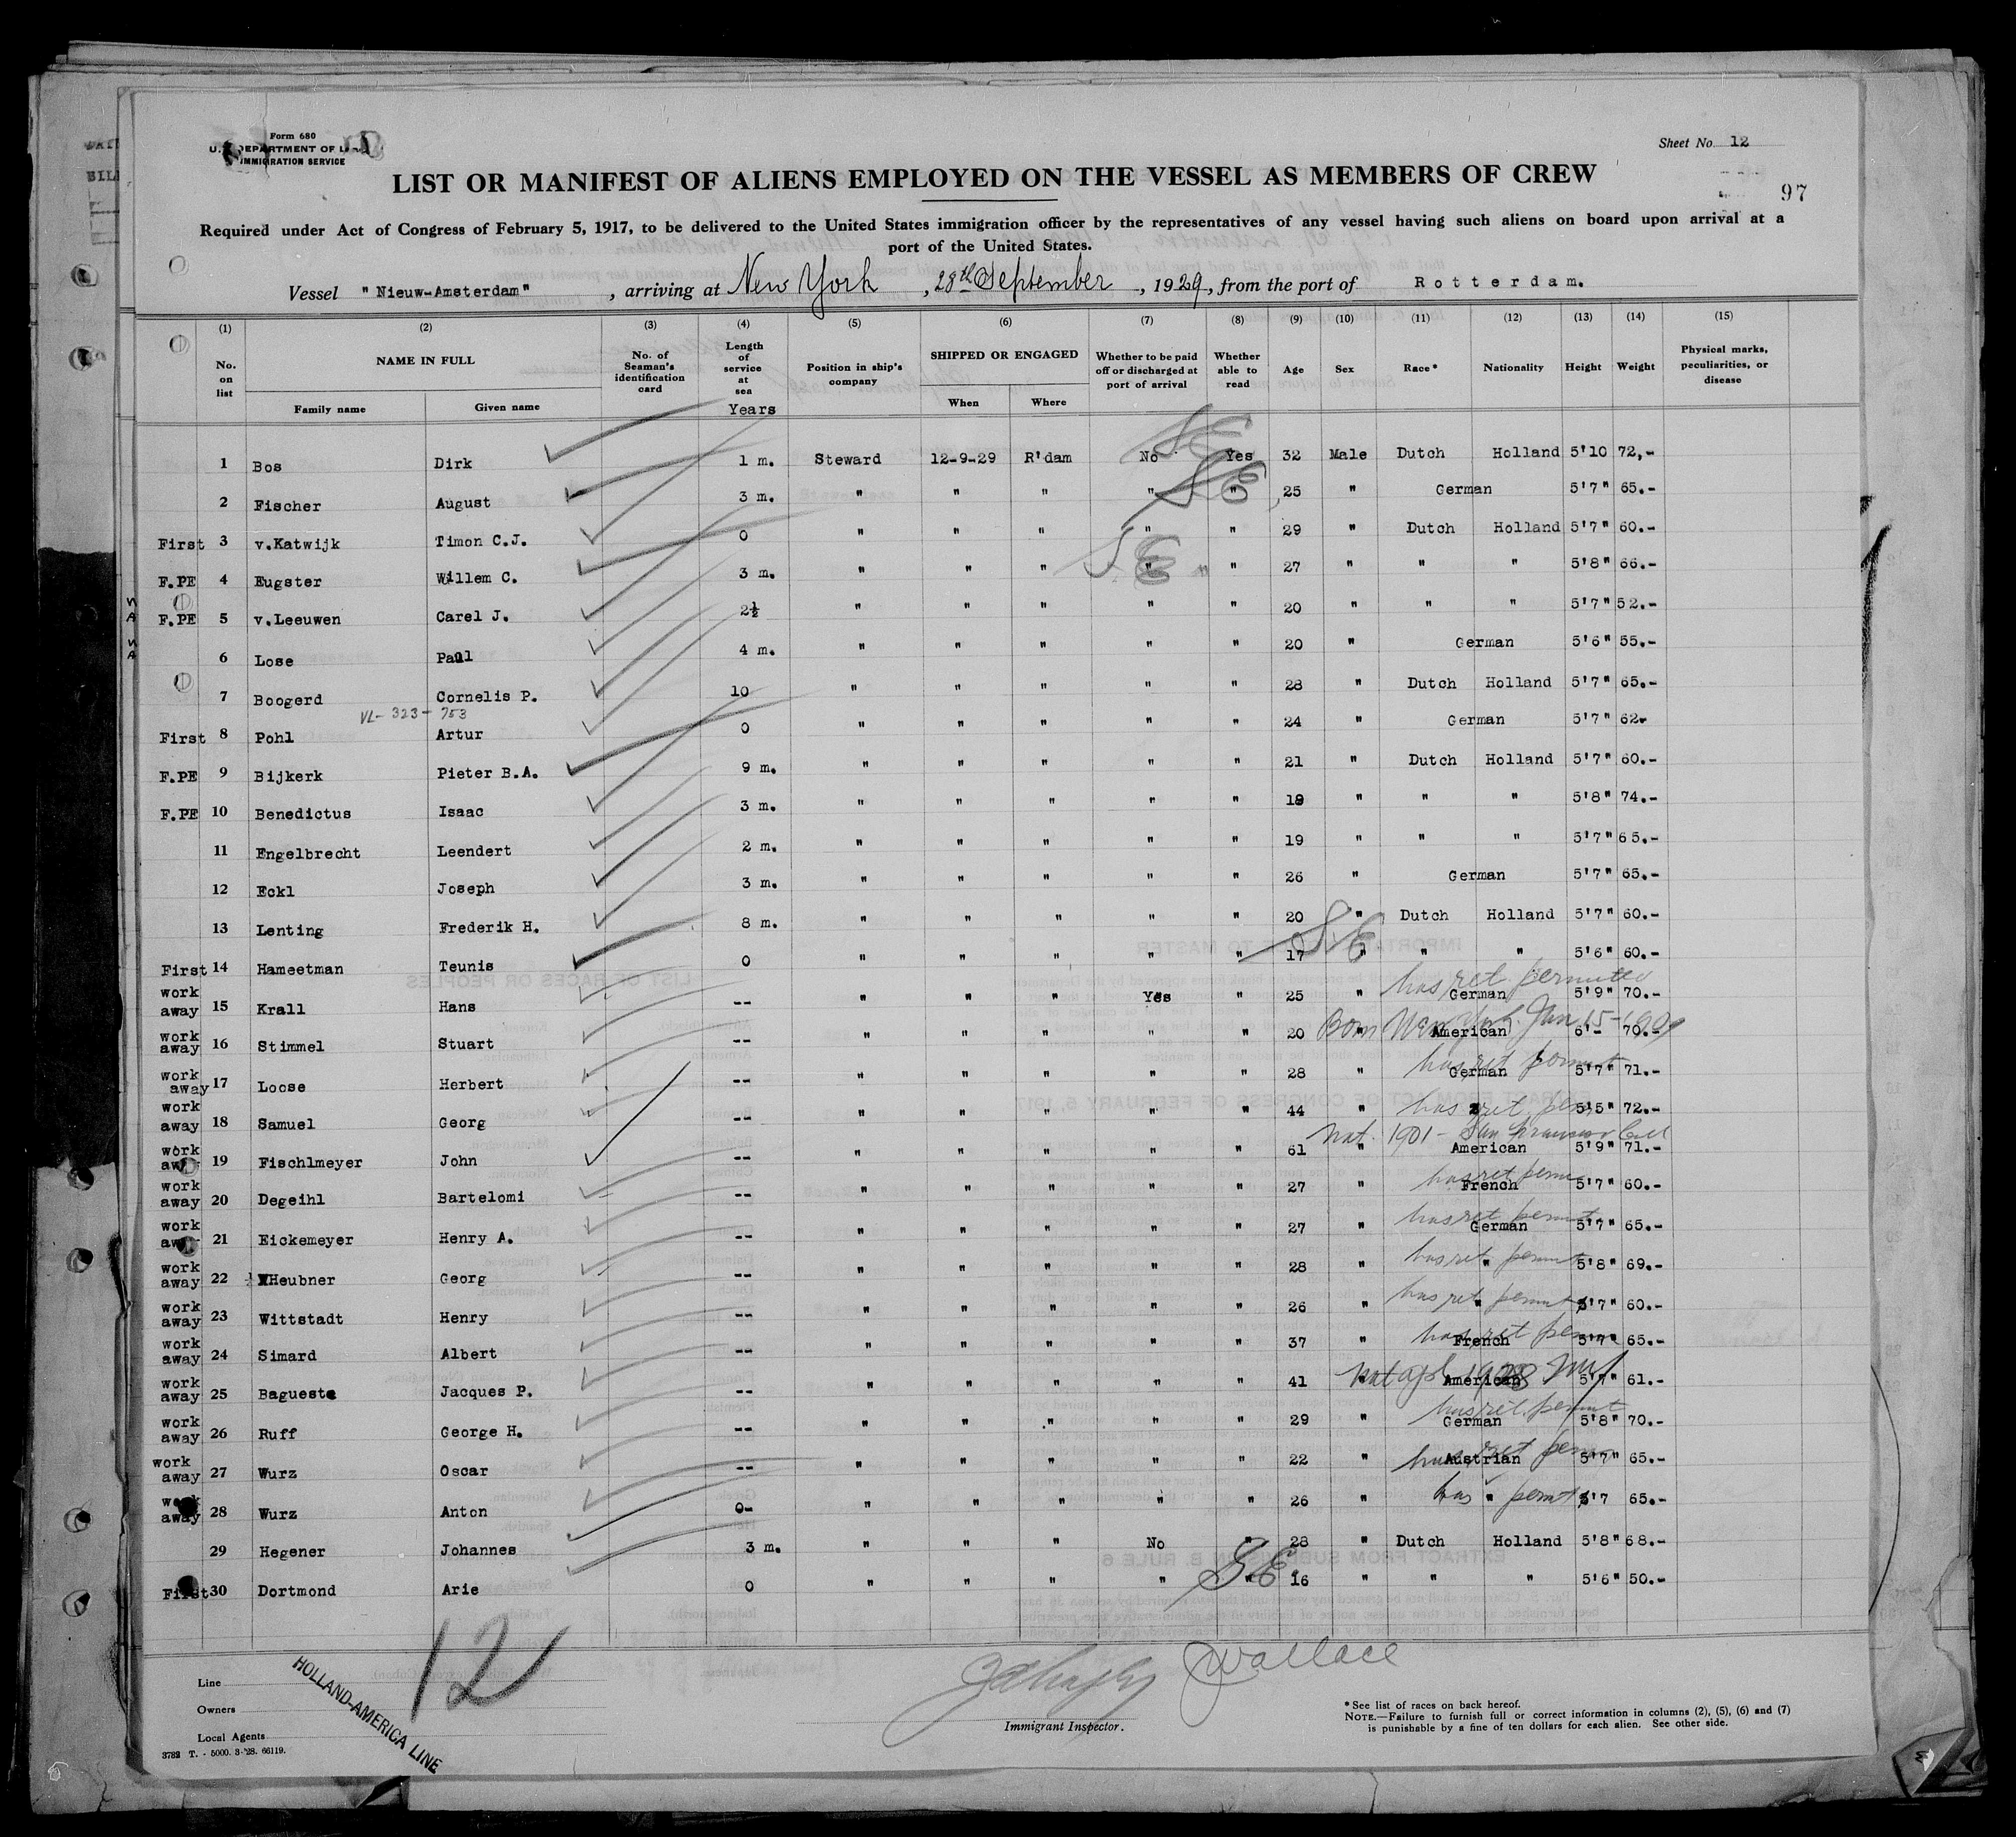 Form 680
U. S. DEPARTMENT OF LABOR
IMMIGRATION SERVICE
Sheet No. 12
97
LIST OR MANIFEST OF ALIENS EMPLOYED ON THE VESSEL AS MEMBERS OF CREW
Required under Act of Congress of February 5, 1917, to be delivered to the United States immigration officer by the representatives of any vessel having such aliens on board upon arrival at a
port of the United States.
Vessel "Nieuw-Amsterdam", arriving at New York, 28th September, 1929, from the port of Rotterdam.
(1) (2) (3) (4) (5) (6) (7) (8) (9) (10) (11) (12) (13) (14) (15)
No. on list NAME IN FULL Family name Given name No. of Seaman's identification card Length of service at sea Years Position in ship's company SHIPPED OR ENGAGED When Where Whether to be paid off or discharged at port of arrival Whether able to read Age Sex Race* Nationality Height Weight Physical marks, peculiarities, or disease
1 Bos Dirk 1 m. Steward 12-9-29 R'dam No Yes 32 Male Dutch Holland 5'10 72,-
2 Fischer August 3 m. " " " " " 25 " German 5'7" 65.-
First 3 v.Katwijk Timon C.J. 0 " " " " " 29 " Dutch Holland 5'7" 60.-
F.PE 4 Eugster Willem C. 3 m. " " " " " 27 " " " 5'8" 66.-
F.PE 5 v.Leeuwen Carel J. 2½ " " " " " 20 " " " 5'7" 52.-
6 Lose Paul 4 m. " " " " " 20 " German 5'6" 55.-
7 Boogerd Cornelis P. 10 " " " " " 28 " Dutch Holland 5'7" 65.-
VL-323-753
First 8 Pohl Artur 0 " " " " " 24 " German 5'7" 62-
F.PE 9 Bijkerk Pieter B.A. 9 m. " " " " " 21 " Dutch Holland 5'7" 60.-
F.PE 10 Benedictus Isaac 3 m. " " " " " 18 " " " 5'8" 74.-
11 Engelbrecht Leendert 2 m. " " " " " 19 " " " 5'7" 65.-
12 Eckl Joseph 3 m. " " " " " 26 " German 5'7" 65.-
13 Lenting Frederik H. 8 m. " " " " " 20 " Dutch Holland 5'7" 60.-
First 14 Hameetman Teunis 0 " " " " " 17 " " " 5'6" 60.-
has ret permit
work away 15 Krall Hans -- " " " Yes " 25 " German 5'9" 70.-
Born New York Jan 15-1909
work away 16 Stimmel Stuart -- " " " " " 20 " American 6'- 70.-
has ret permit
work away 17 Loose Herbert -- " " " " " 28 " German 5'7" 71.-
work away 18 Samuel Georg -- " " " " " 44 " has ret. perm 5'5" 72.-
Nat. 1901 - San Francisco Cal
work away 19 Fischlmeyer John -- " " " " " 61 " American 5'9" 71.-
has ret perm
work away 20 Degeihl Bartelomi -- " " " " " 27 " French 5'7" 60.-
has ret permit
work away 21 Eickemeyer Henry A. -- " " " " " 27 " German 5'7" 65.-
has ret permit
work away 22 Heubner Georg -- " " " " " 28 " " 5'8" 69.-
has ret permit
work away 23 Wittstadt Henry -- " " " " " 26 " " 5'7" 60.-
has ret perm
work away 24 Simard Albert -- " " " " " 37 " French 5'7" 65.-
Nat apl 1928 NY
work away 25 Bagueste Jacques P. -- " " " " " 41 " American 5'7" 61.-
has ret. permit
work away 26 Ruff George H. -- " " " " " 29 " German 5'8" 70.-
has ret perm
work away 27 Wurz Oscar -- " " " " " 22 " Austrian 5'7" 65.-
has " permit
work away 28 Wurz Anton 0- " " " " " 26 " " 5'7 65.-
29 Hegener Johannes 3 m. " " " No " 28 " Dutch Holland 5'8" 68.-
First 30 Dortmond Arie 0 " " " " " 16 " " " 5'6" 50.-
SE
SE
SE
SE
SE
12
Wallace
Line
Owners
Local Agents
HOLLAND-AMERICA LINE
Immigrant Inspector.
*See list of races on back hereof.
NOTE.—Failure to furnish full or correct information in columns (2), (5), (6) and (7)
is punishable by a fine of ten dollars for each alien. See other side.
3782 T. - 5000. 3-'28. 66119.